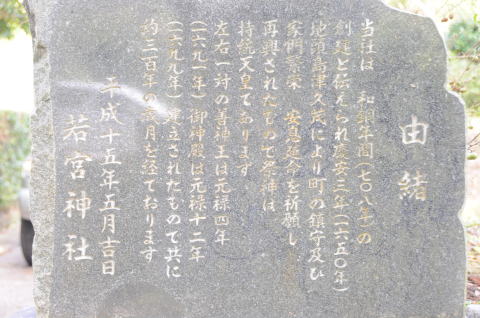 由緒
当社は 和銅年間(七〇八年)の
創建と伝えられ慶安三年(一六五〇年)
地頭島津久茂により町の鎮守及び
家門繁栄 安息延命を祈願し
再興されたもので祭神は
持統天皇であります
左右一対の善神王は元禄四年
(一六九一年)御神殿は元禄十二年
(一六九九年)建立されたもので共に
約三百年の歳月を経ております
平成十五年五月吉日
若宮神社